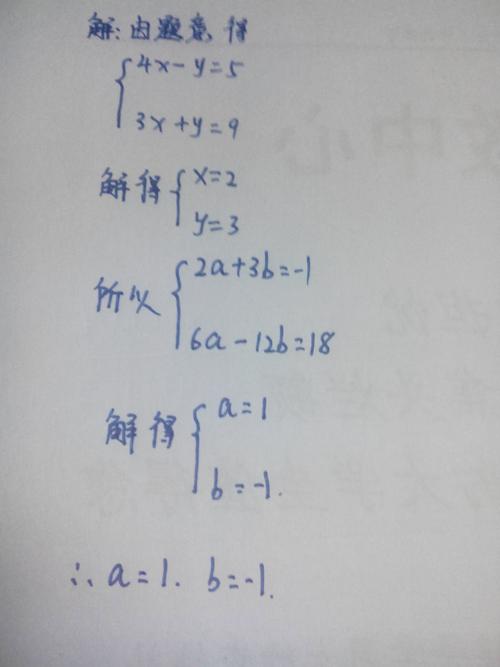 解:由题意得
4x-y=5
3x+y=9
解得 x=2
y=3
所以 2a+3b=-1
6a-12b=18
解得 a=1
b=-1.
∴a=1. b=-1.